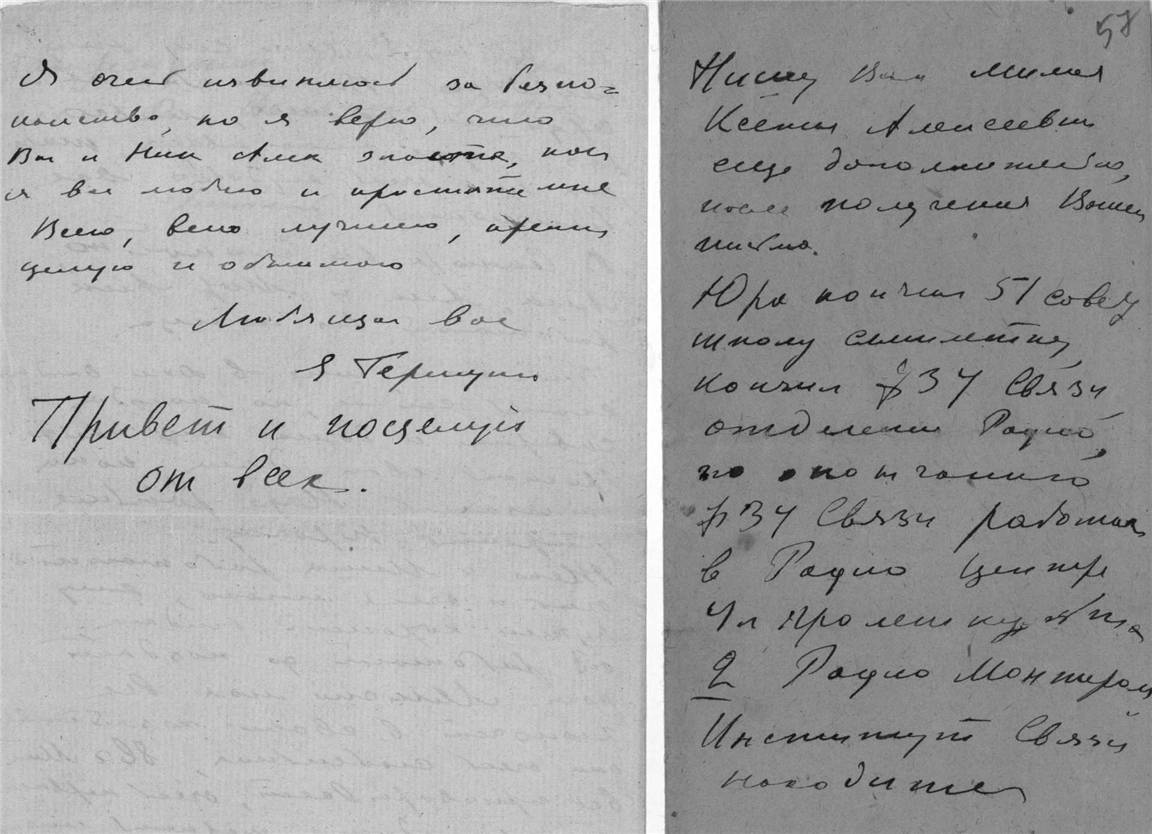 Я очень извиняюсь за беспо=
койство, но я верю, что
Вы и Ник Алек знаете, как
я вас люблю и простите мне
Всего, всего лучшего, крепко
целую и обнимаю
Любящая вас
Я
Привет и поцелуй
от всех.
58
Пишу Вам милая
Ксения Алексеевна
еще дополнительно,
после получения Вашего
письма.
Юра кончил 51 совет
школу семилетку,
кончил 34 Связи
отделение Радио,
по окончании
34 Связи работал
в Радио Центре
Ул
Радио Монтером
Институт Связи
находится